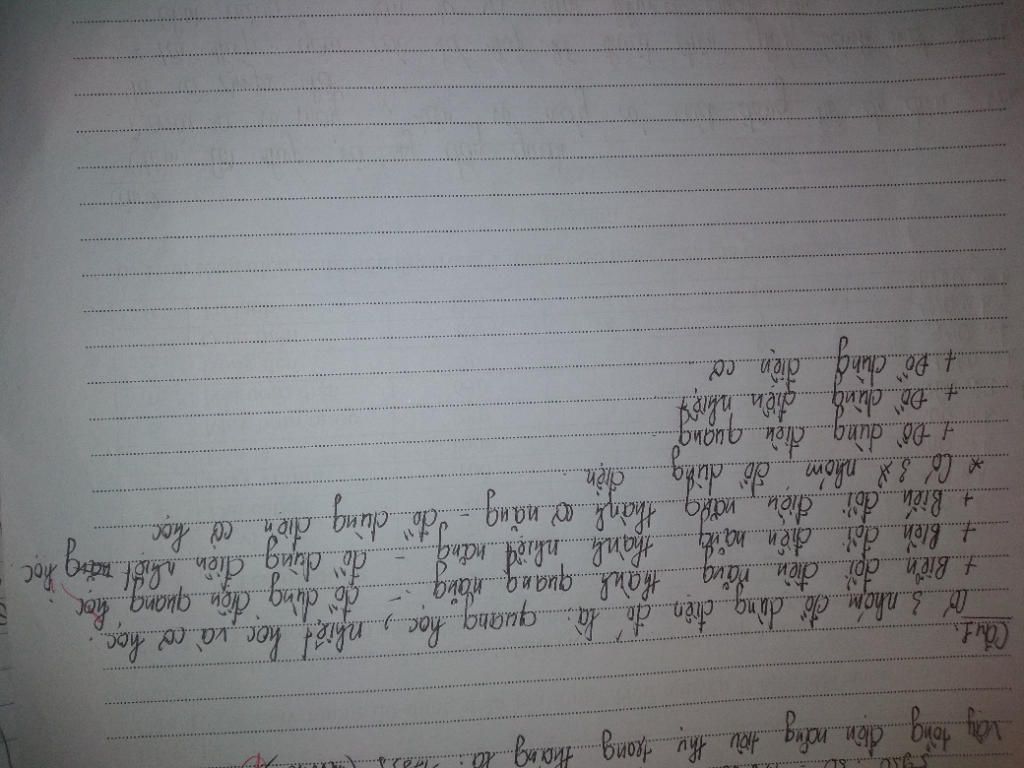 vậy tổng điện năng tiêu thụ trong tháng là:
Câu 1.
Có 3 nhóm đồ dùng điện đó là: quang học, nhiệt học và cơ học.
+ Biến đổi điện năng thành quang năng - đồ dùng điện quang học
+ Biến đổi điện năng thành nhiệt năng - đồ dùng điện nhiệt học.
+ Biến đổi điện năng thành cơ năng - đồ dùng điện cơ học
* Có 3 nhóm đồ dùng điện
+ Đồ dùng điện quang
+ Đồ dùng điện nhiệt
+ Đồ dùng điện cơ